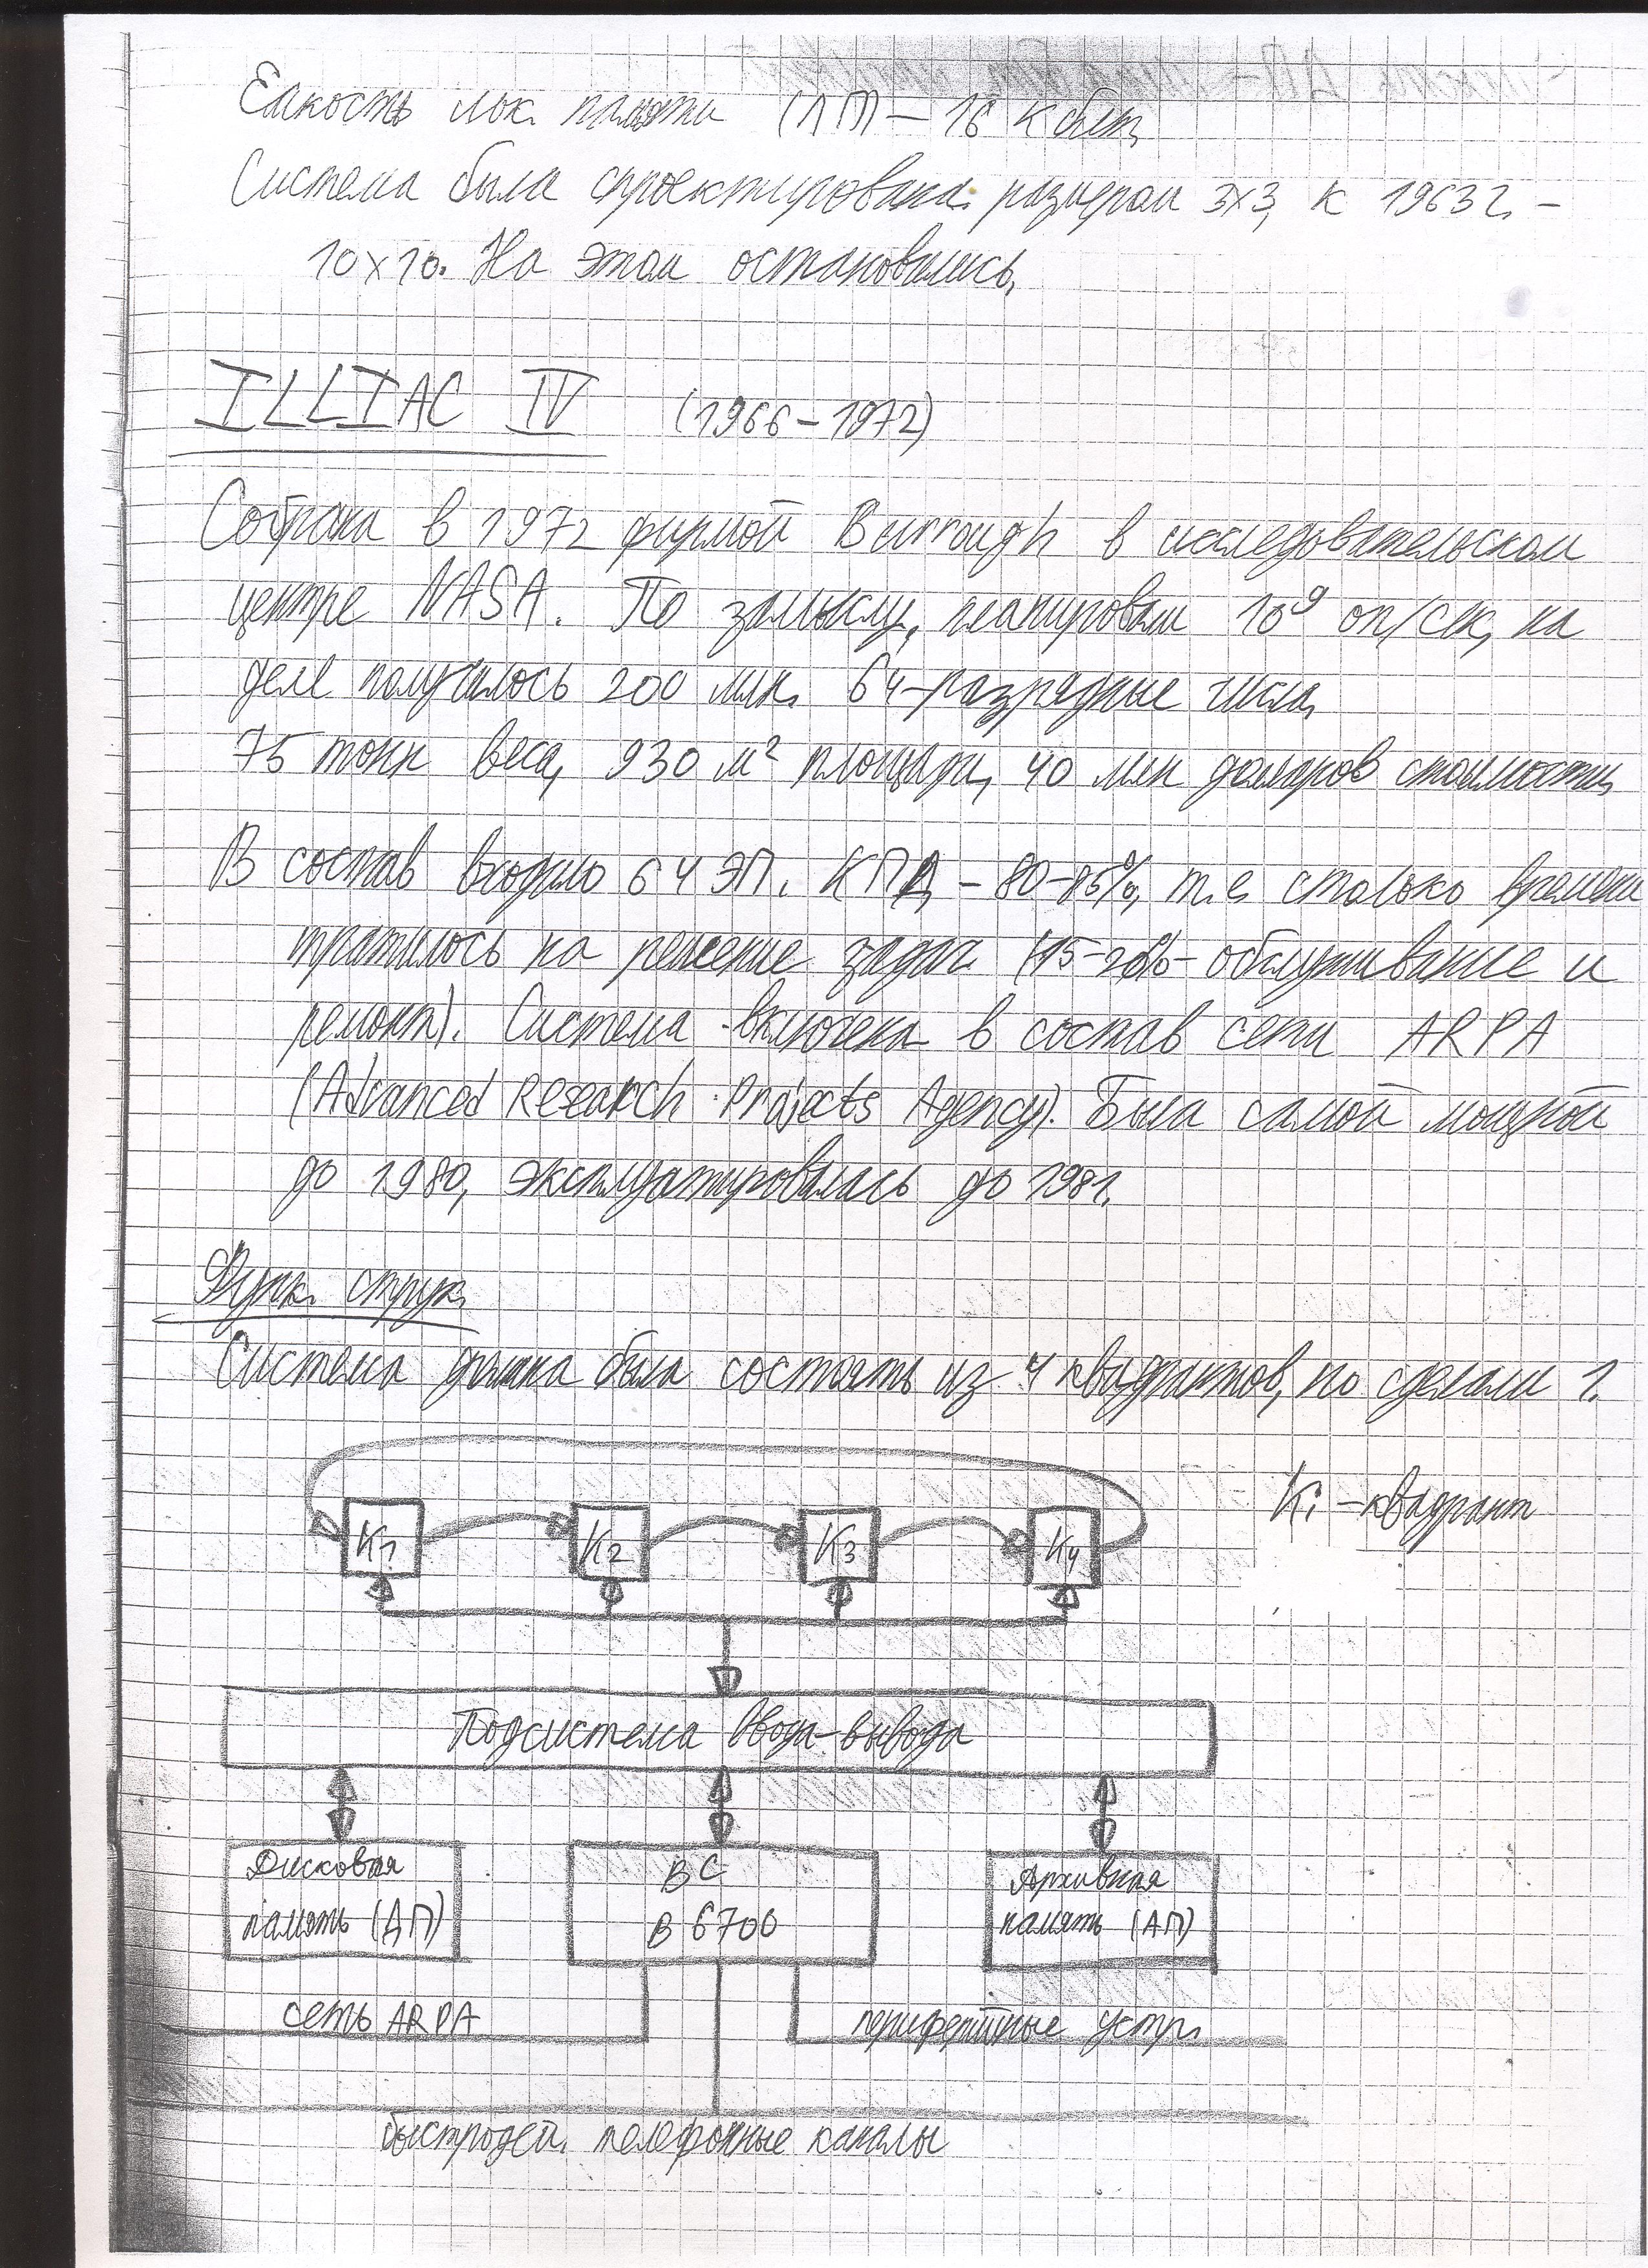 Емкость лок. памяти (ЛП) – 16 Кбит.
Система была спроектирована размером 3х3, к 1963 г. –
10х10. На этом остановились.
ILLIAC IV (1966–1972)
Собрана в 1972 фирмой Burrough в исследовательском
центре NASA. По замыслу, планировали 10⁹ оп/сек, на
деле получилось 200 млн. 64-разрядные числа.
75 тонн веса, 930 м² площади, 40 млн долларов стоимость.
В состав входило 64 ЭП. КПД – 80-85%, т.е. столько времени
тратилось на решение задач (15-20% – обслуживание и
ремонт). Система включена в состав сети ARPA
(Advanced Research Projects Agency). Была самой мощной
до 1980, эксплуатировалась до 1981.
Функ. струк.
Система должна была состоять из 4 квадрантов, но сделали 1.
Ki – квадрант
K1 K2 K3 K4
Подсистема ввода-вывода
Дисковая ВС Архивная
память (ДП) B 6700 память (АП)
сеть ARPA периферийные устр.
быстродей. телефонные каналы